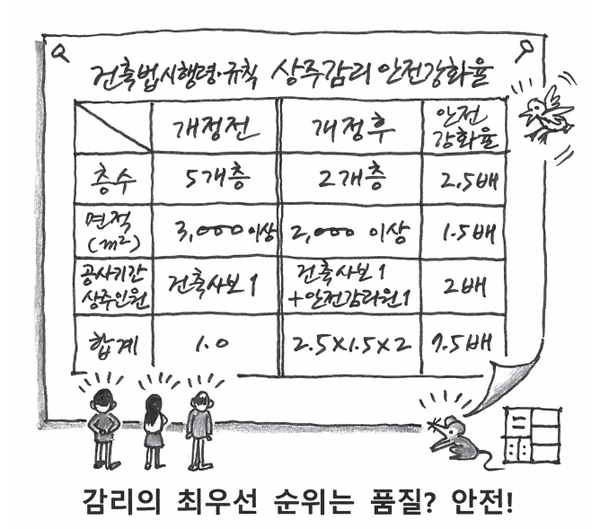 건축법시행령·규칙 상주감리 안전강화율
개정전 개정후 안전강화율
층수 5개층 2개층 2.5배
면적(m²) 3,000이상 2,000 이상 1.5배
공사기간상주인원 건축사보 1 건축사보 1+안전감리원1 2배
합계 1.0 2.5x1.5x2 7.5배
감리의 최우선 순위는 품질? 안전!